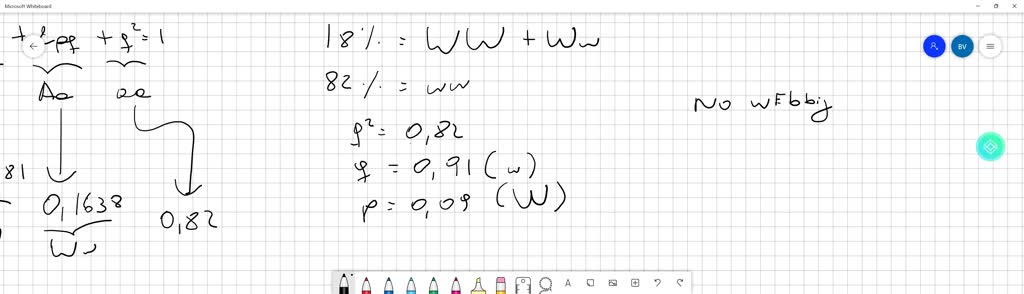 Microsoft Whiteboard
+ 2pq + q² = 1
Aa aa
81
0,1638 0,82
Ww
18% = WW + Ww
82% = ww
q² = 0,82
q = 0,91 (w)
p = 0,09 (W)
No wEbbij
BV